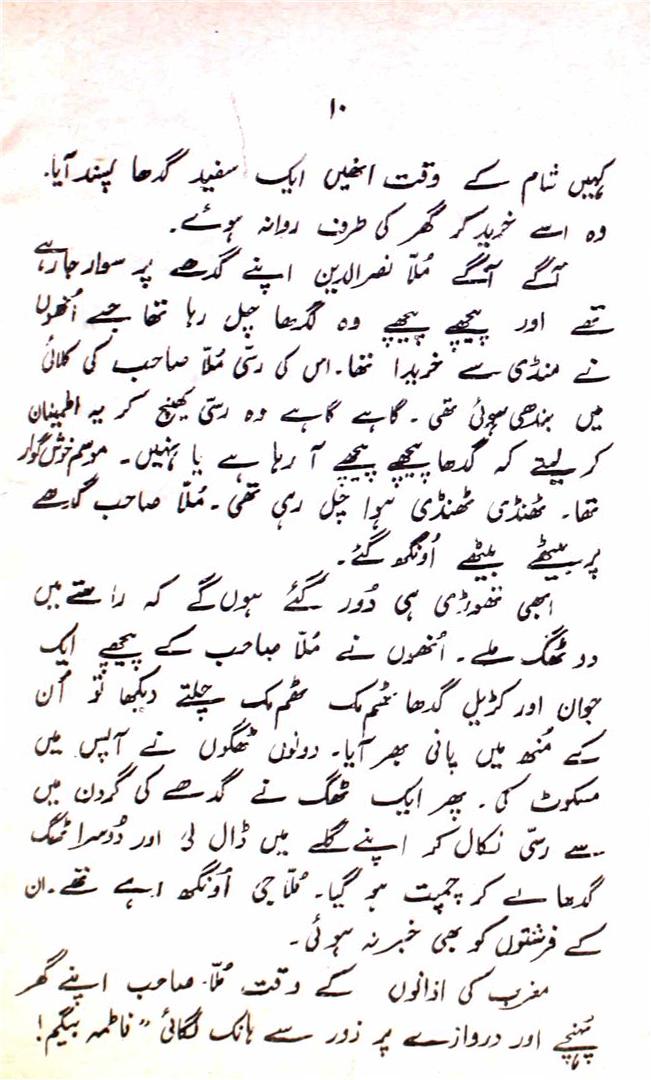 ۱۰
کہیں شام کے وقت انھیں ایک سفید گدھا پسند آیا۔
وہ اسے خرید کر گھر کی طرف روانہ ہوئے۔
آگے آگے مُلّا نصرالدین اپنے گدھے پر سوار جا رہے
تھے اور پیچھے پیچھے وہ گدھا چل رہا تھا جسے اُنھوں
نے منڈی سے خریدا تھا۔ اس کی رسّی مُلّا صاحب کی کلائی
میں بندھی ہوئی تھی۔ گاہے گاہے وہ رسّی کھینچ کر یہ اطمینان
کر لیتے کہ گدھا پیچھے پیچھے آ رہا ہے یا نہیں۔ موسم خوش گوار
تھا۔ ٹھنڈی ٹھنڈی ہوا چل رہی تھی۔ مُلّا صاحب گدھے
پر بیٹھے بیٹھے اُونگھ گئے۔
ابھی تھوڑی ہی دُور گئے ہوں گے کہ راستے میں
دو ٹھگ ملے۔ اُنھوں نے مُلّا صاحب کے پیچھے ایک
جوان اور کڑیل گدھا ٹھمک ٹھمک چلتے دیکھا تو اُن
کے مُنھ میں پانی بھر آیا۔ دونوں ٹھگوں نے آپس میں
مسکوٹ کی۔ پھر ایک ٹھگ نے گدھے کی گردن میں
سے رسّی نکال کر اپنے گلے میں ڈال لی اور دُوسرا ٹھگ
گدھا لے کر چمپت ہو گیا۔ مُلّا جی اُونگھ رہے تھے۔ ان
کے فرشتوں کو بھی خبر نہ ہوئی۔
مغرب کی اذانوں کے وقت مُلّا صاحب اپنے گھر
پہُنچے اور دروازے پر زور سے ہانک لگائی "فاطمہ بیگم!